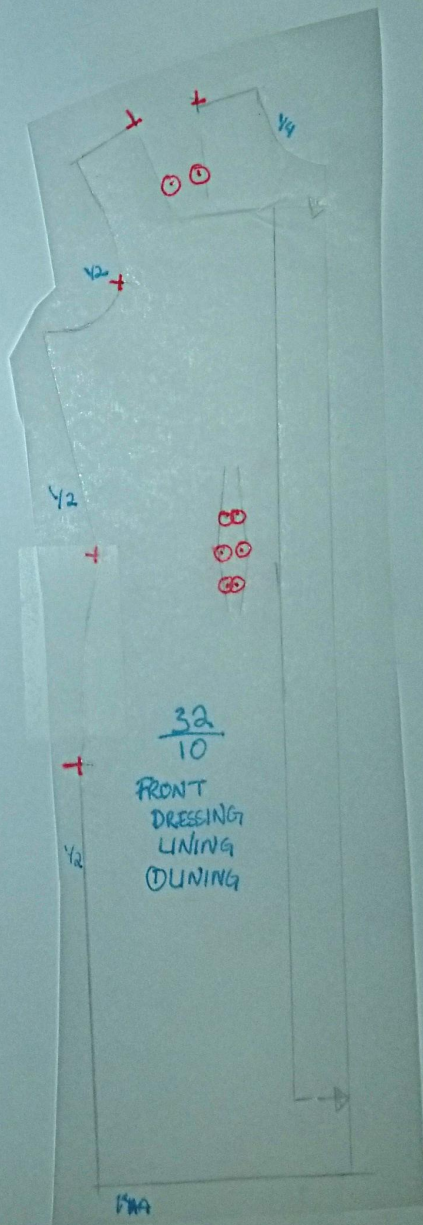 1/4
1/2
1/2
32
10
FRONT
DRESSING
LINING
① LINING
1/2